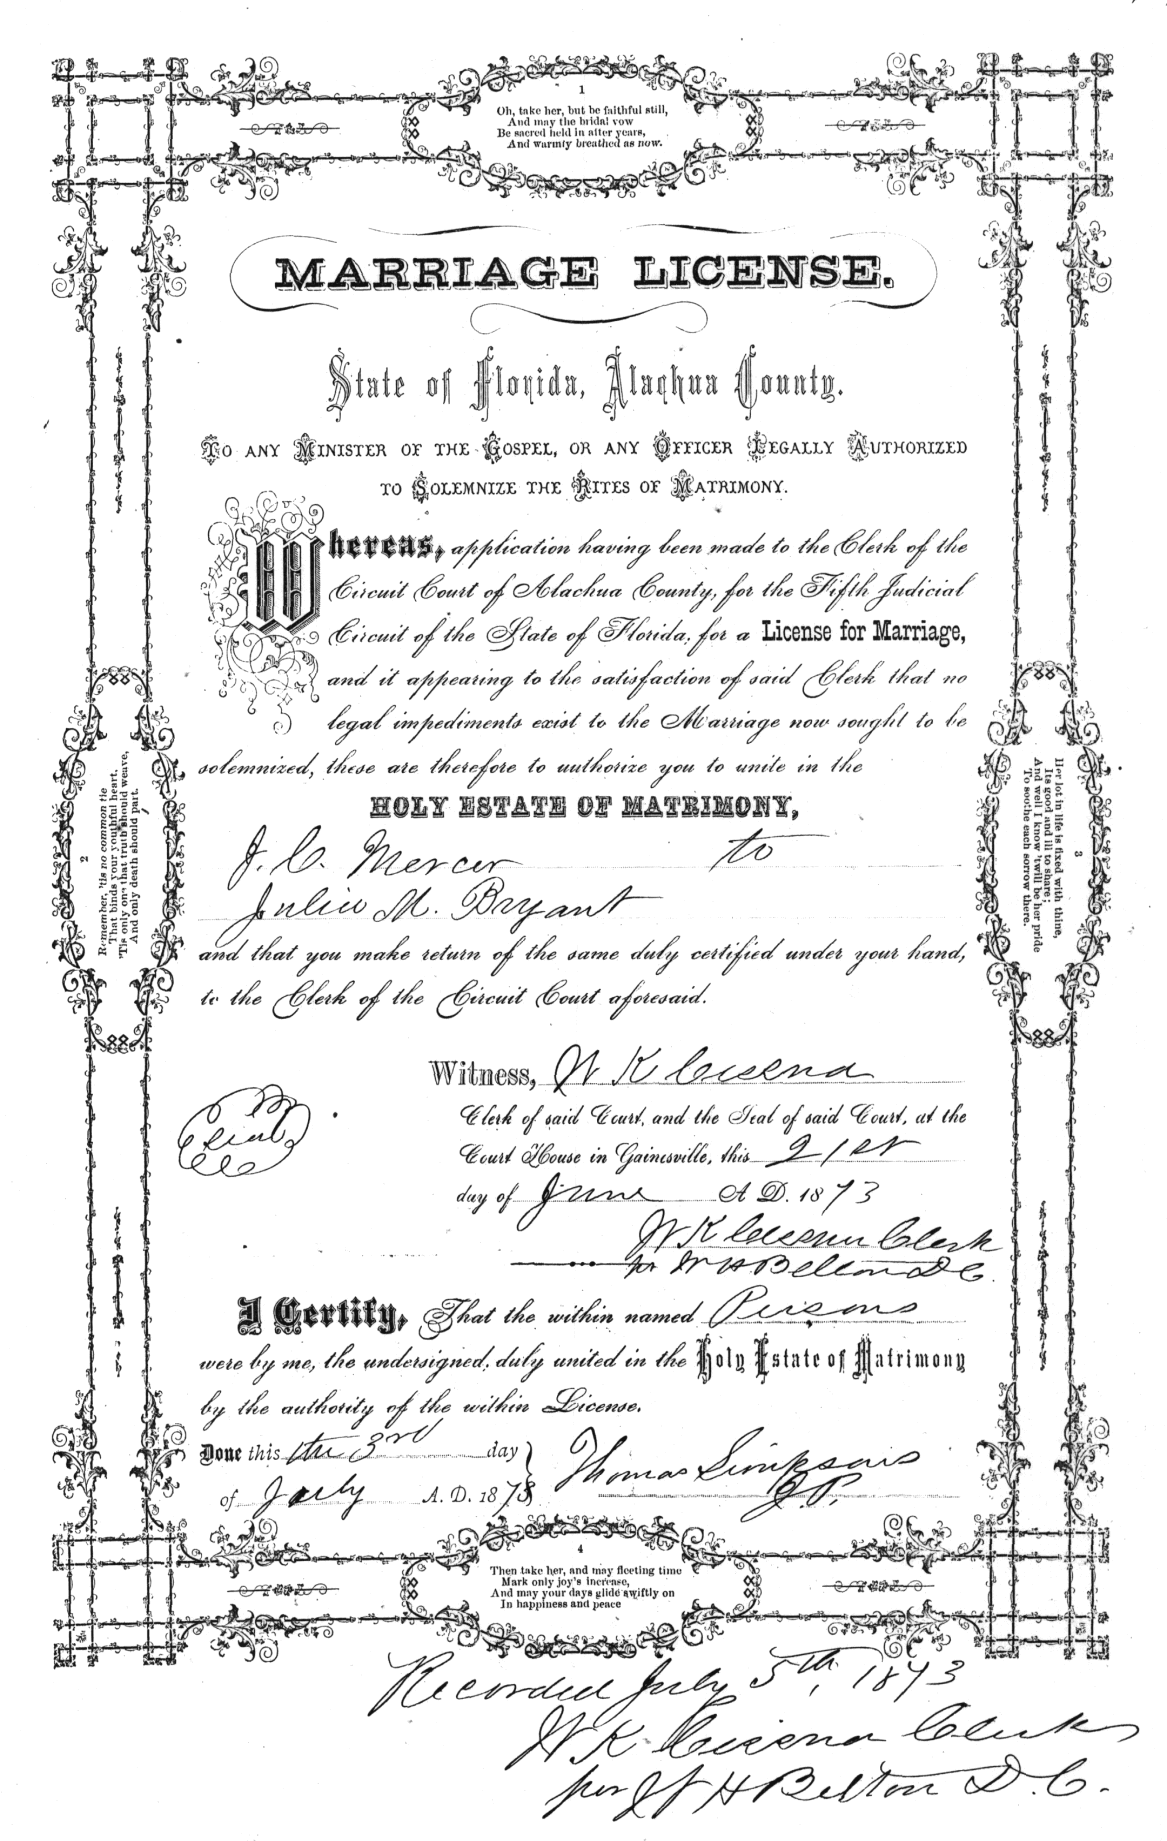 1
Oh, take her, but be faithful still,
And may the bridal vow
Be sacred held in after years,
And warmly breathed as now.
MARRIAGE LICENSE.
State of Florida, Alachua County.
TO ANY MINISTER OF THE GOSPEL, OR ANY OFFICER LEGALLY AUTHORIZED
TO SOLEMNIZE THE RITES OF MATRIMONY.
Whereas, application having been made to the Clerk of the
Circuit Court of Alachua County, for the Fifth Judicial
Circuit of the State of Florida, for a License for Marriage,
and it appearing to the satisfaction of said Clerk that no
legal impediments exist to the Marriage now sought to be
solemnized, these are therefore to authorize you to unite in the
HOLY ESTATE OF MATRIMONY,
J. C. Mercer to
Julia M. Bryant
and that you make return of the same duly certified under your hand,
to the Clerk of the Circuit Court aforesaid.
2
Remember, 'tis no common tie
That binds your youthful heart,
'Tis only one that truth should weave,
And only death should part.
3
Her lot in life is fixed with thine,
Its good and ill to share;
And well I know 'twill be her pride
To soothe each sorrow there.
Witness, W K Cessna
Clerk of said Court, and the Seal of said Court, at the
Court House in Gainesville, this 21st
day of June A D. 1873
Seal
W K Cessna Clerk
per W H Belton D C.
I Certify, That the within named Persons
were by me, the undersigned, duly united in the Holy Estate of Matrimony
by the authority of the within License.
Done this the 3rd day
of July A. D. 1873
Thomas Simpson
J P.
4
Then take her, and may fleeting time
Mark only joy's increase,
And may your days glide swiftly on
In happiness and peace
Recorded July 5th, 1873
W K Cessna Clerk
per W H Belton D. C.